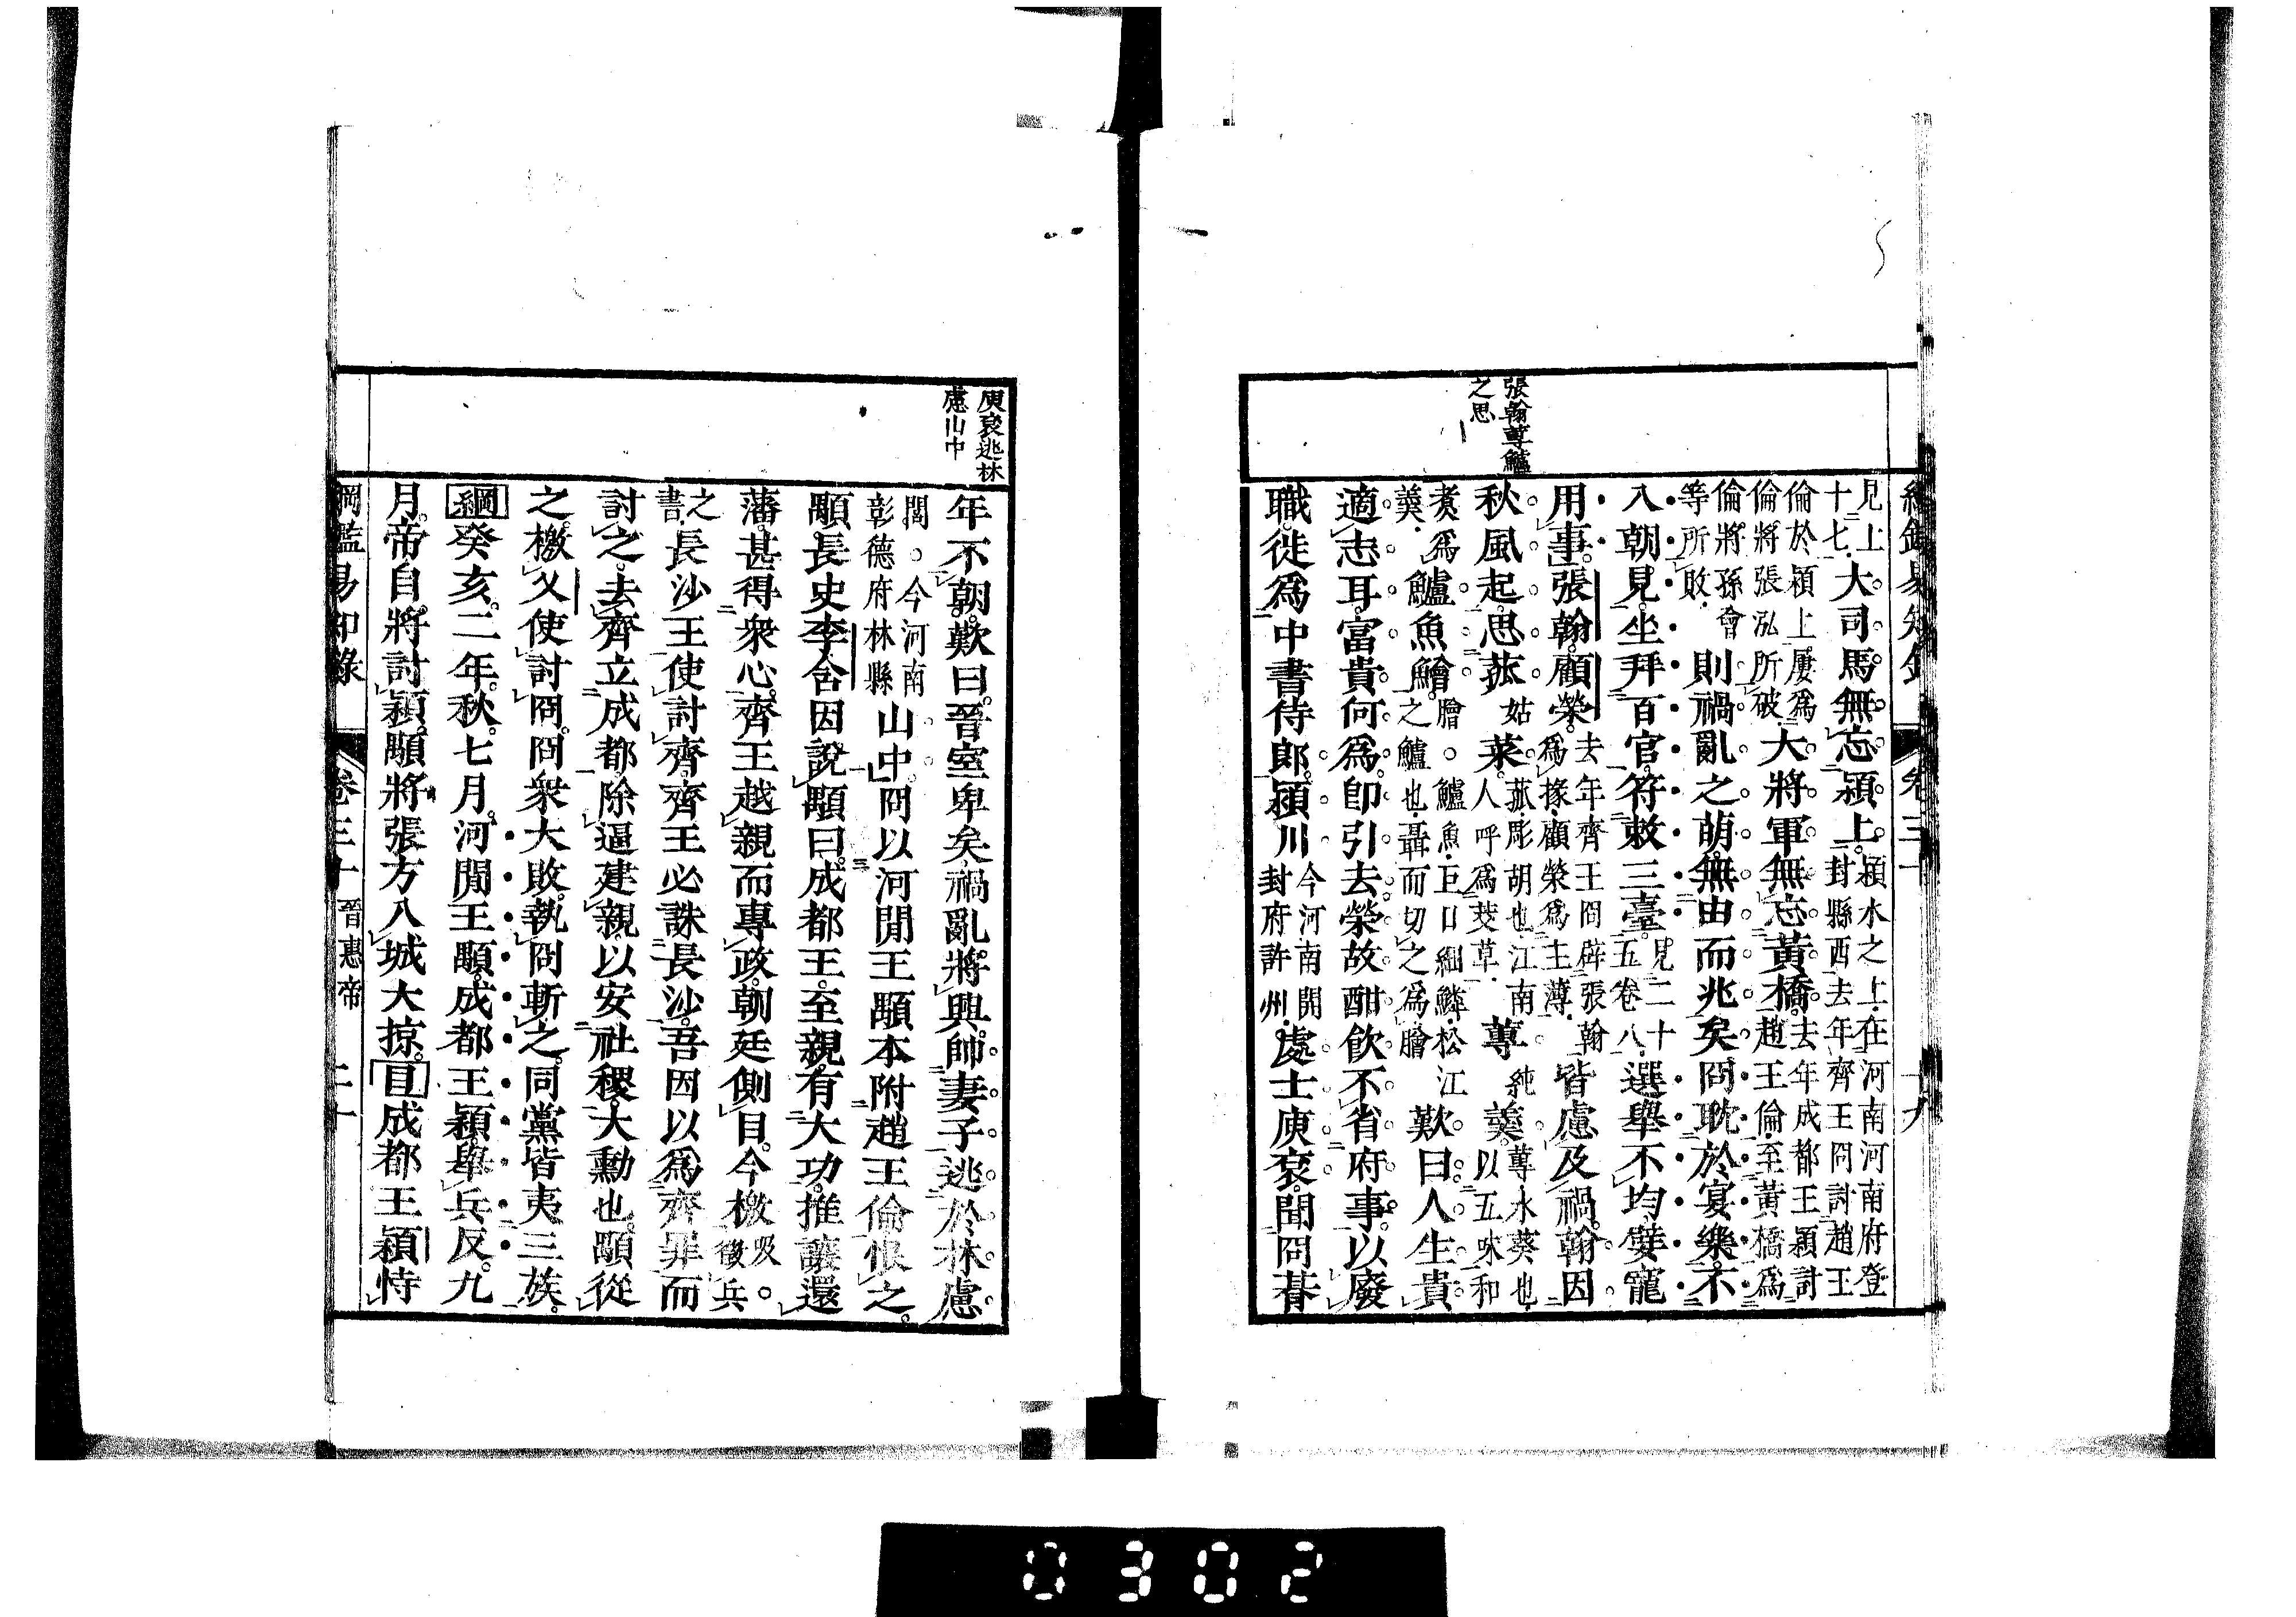 張翰蓴鱸
之思
見上
十七
大司馬無忘潁上
潁水之上在河南河南府登
封縣西去年齊王冏討趙王
倫於潁上屢爲
倫將張泓所破
大將軍無忘黃橋
去年成都王潁討
趙王倫至黃橋爲
倫將孫會
等所敗
則禍亂之萌無由而兆矣冏耽於宴樂不
入朝見坐拜百官符敕三臺
見二十
五卷八
選舉不均嬖寵
用事張翰顧榮
去年齊王冏辟張翰
爲掾顧榮爲主薄
皆慮及禍翰因
秋風起思菰
姑
菜
菰彫胡也江南
人呼爲茭草
蓴
純
羹
蓴水葵也
以五味和
煮爲
羹
鱸魚鱠
膾○鱸魚巨口細鱗松江
之鱸也聶而切之爲膾
歎曰人生貴
適志耳富貴何爲卽引去榮故酣飲不省府事以廢
職徙爲中書侍郎潁川
今河南開
封府許州
處士庾袞聞冏朞
綱鑑易知錄 卷三十 十九
庾袞逃林
慮山中
年不朝歎曰晉室卑矣禍亂將興帥妻子逃於林慮
閭○今河南
彰德府林縣
山中冏以河閒王顒本附趙王倫恨之
顒長史李含因說顒曰成都王至親有大功推讓還
藩甚得衆心齊王越親而專政朝廷側目今檄
吸○
徵兵
之
書
長沙王使討齊齊王必誅長沙吾因以爲齊罪而
討之去齊立成都除逼建親以安社稷大勳也顒從
之檄乂使討冏冏衆大敗執冏斬之同黨皆夷三族
綱癸亥二年秋七月河閒王顒成都王潁舉兵反九
月帝自將討潁顒將張方入城大掠目成都王潁恃
綱鑑易知錄 卷三十 晉惠帝 二十
0302